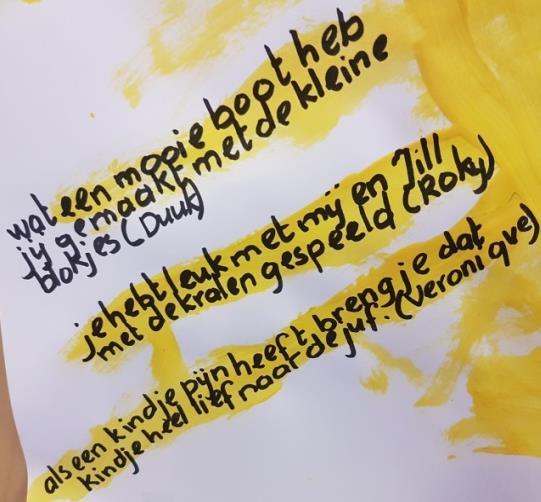 wat een mooie boot heb
jij gemaakt met de kleine
blokjes (Duuk)
je hebt leuk met mij en Jill
met de kralen gespeeld (Roky)
als een kindje pijn heeft breng je dat
kindje heel lief naar de juf. (Veronique)